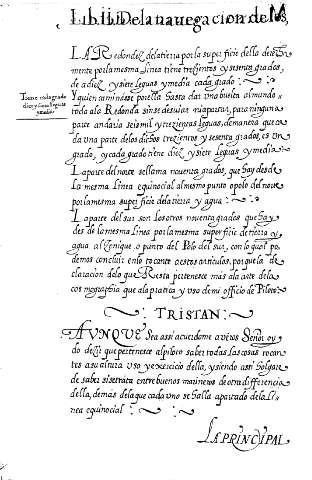 Lib. II. De la nauegacion de los,
LA Redondez de la tierra por la superficie della derecha
mente por la mesma Linea tiene trezientos y sesenta grados,
de a diez y siete leguas y media cada grado :
Tiene cada grado
diez y siete leguas
y media
Y quien caminase por ella hasta dar vna buelta al mundo
toda a la Redonda sin se desuiar, ni apartar, para ninguna
parte andaria seis mil y trezientas leguas, de manera que ca
da vna parte de los dichos trezientos y sesenta grados, es vn
grado, y cada grado tiene diez y siete leguas y media
La parte del norte se llama nouenta grados, que hay desde
la mesma Linea equinocial al mesmo punto o polo del norte
por la mesma superficie de la tierra y agua :
La parte del sur son los otros nouenta grados que ha y
desde la mesma Linea por la mesma superficie de tierra y
agua al Zenique, o punto del Polo del sur, con lo qual po
demos concluir en lo tocante a estos articulos, porque la de
claracion de lo que Resta pertenesce más al a arte de la
cosmographia que a la pratica y vso de mi officio de Piloto
TRISTAN :
AVNQVE Sea assi acuerdome aueros Señor oy
do dezir que pertenesce al piloto saber todas las cosas tocan
tes a su altura vso y exercicio della, y siendo assi holgare
de saber si se trata entre buenos marineros de otra differencia
della, demás de la que cada vno se halla apartado de la Li
nea equinocial :
LA PRINCIPAL